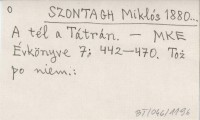 o
SZONTAGH Miklós 1880...
A tél a Tátrán. — MKE
Évkönyve 7; 442—470. Toż
po niem.:
BJ/046/1896